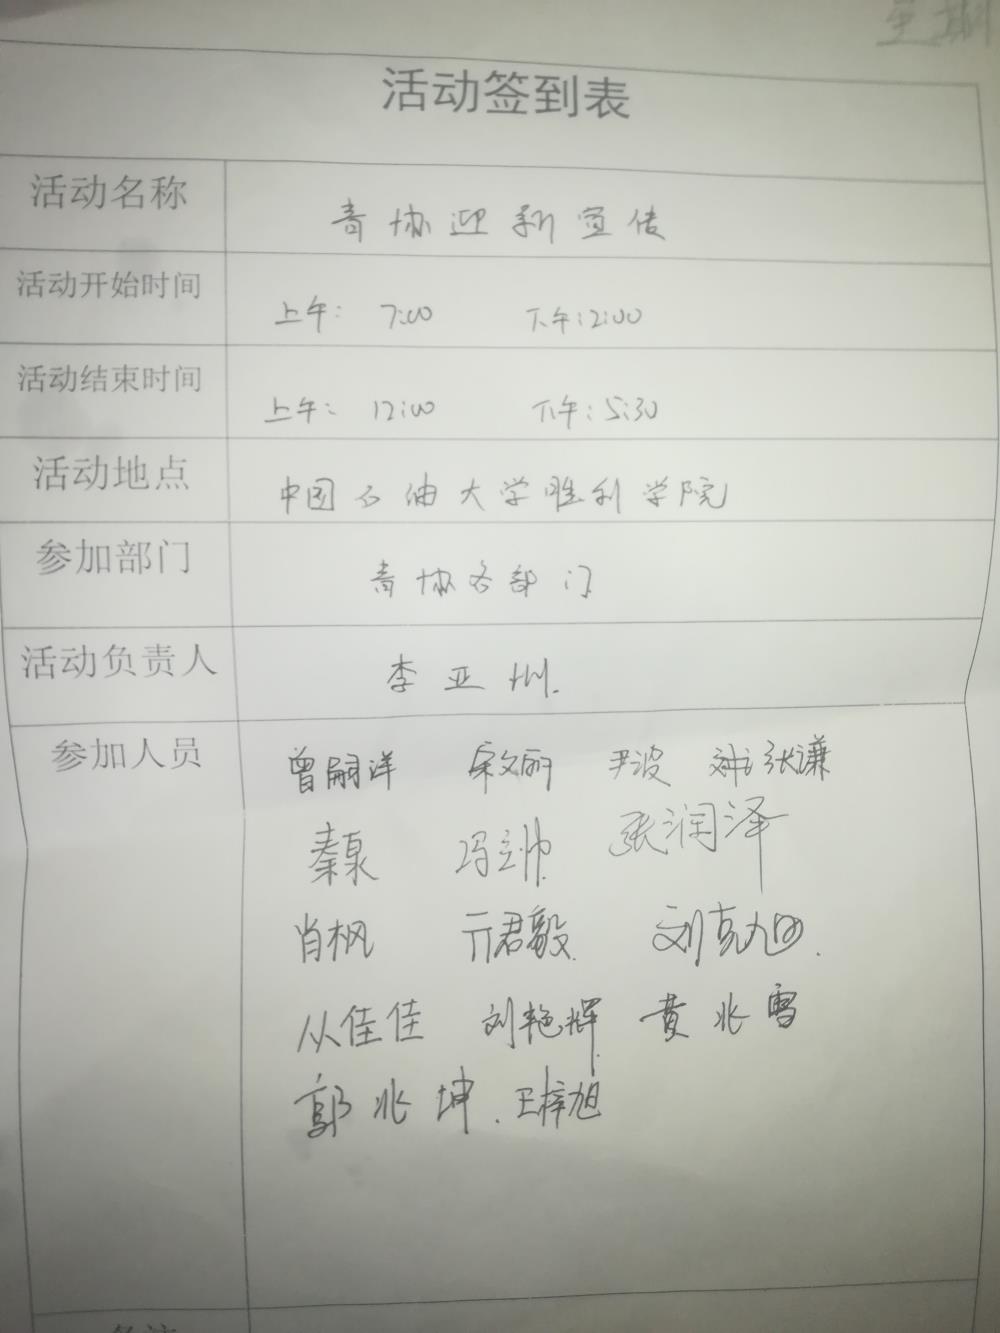 星期
活动签到表
活动名称 青协迎新宣传
活动开始时间 上午: 7:00 下午:2:00
活动结束时间 上午: 12:00 下午:5:30
活动地点 中国石油大学胜利学院
参加部门 青协各部门
活动负责人 李亚州.
参加人员 曾嗣洋 宋文丽 尹波 张谦
秦泉 冯帅 张润泽
肖枫 亓君毅 刘克旭.
从佳佳 刘艳辉 黄兆雪
郭兆坤. 王梓旭
备注